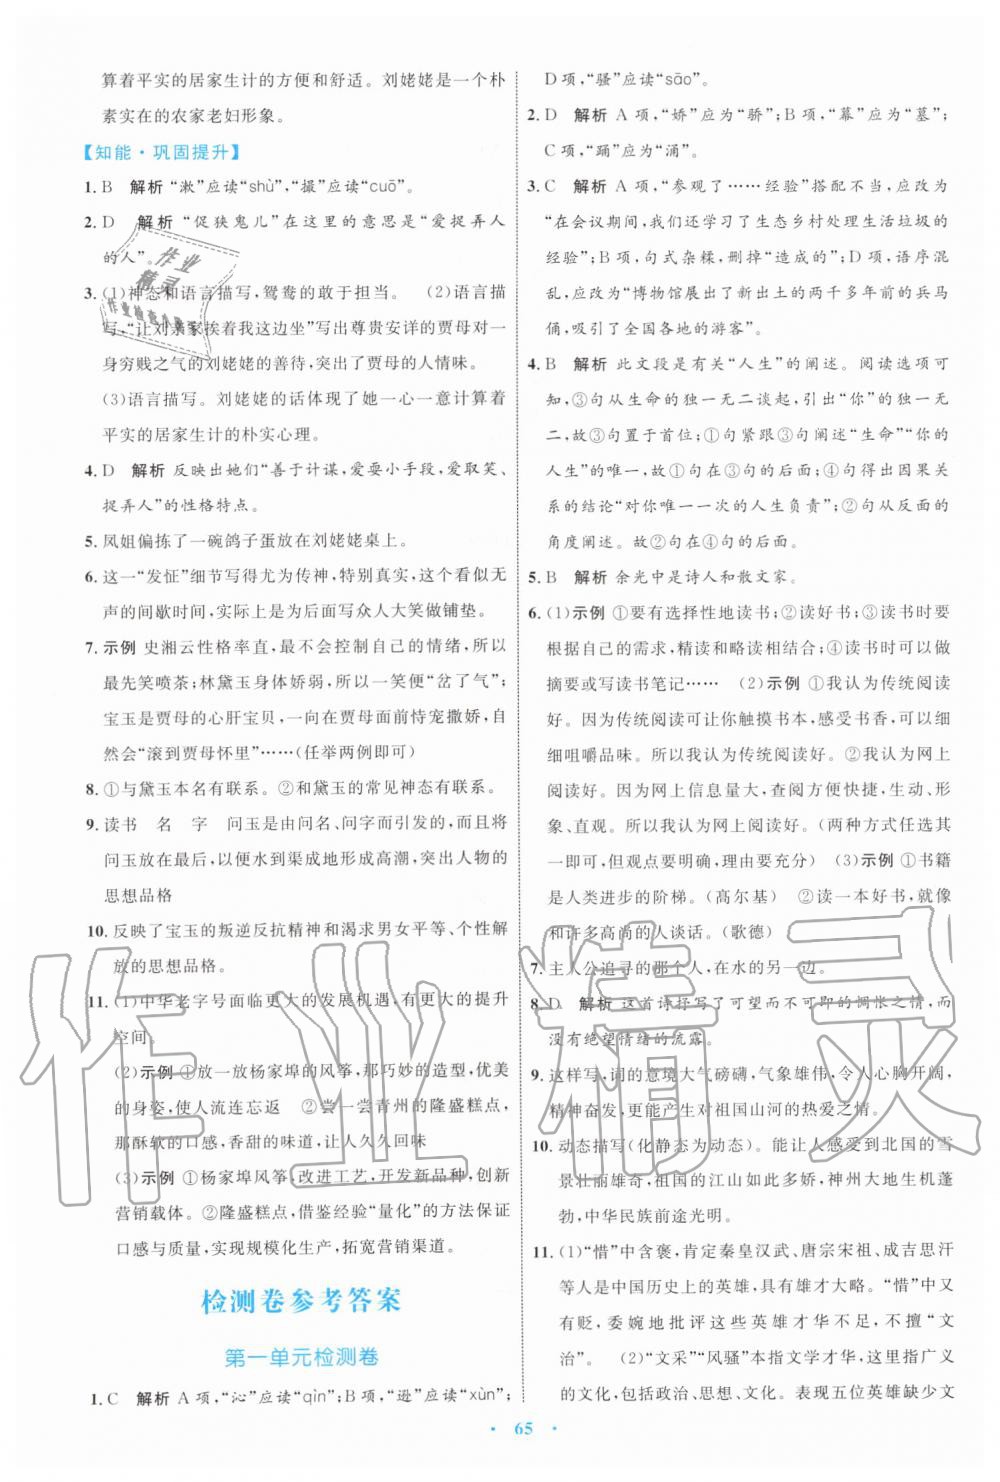 算着平实的居家生计的方便和舒适。刘姥姥是一个朴
素实在的农家老妇形象。
【知能·巩固提升】
1. B 解析 “漱”应读“shù”,“撮”应读“cuō”。
2. D 解析 “促狭鬼儿”在这里的意思是“爱捉弄人
的人”。
3. (1)神态和语言描写,鸳鸯的敢于担当。 (2)语言描
写,“让刘亲家挨着我这边坐”写出尊贵安详的贾母对一
身穷贱之气的刘姥姥的善待,突出了贾母的人情味。
(3)语言描写。刘姥姥的话体现了她一心一意计算着
平实的居家生计的朴实心理。
4. D 解析 反映出她们“善于计谋,爱耍小手段,爱取笑、
捉弄人”的性格特点。
5. 凤姐偏拣了一碗鸽子蛋放在刘姥姥桌上。
6. 这一“发怔”细节写得尤为传神,特别真实,这个看似无
声的间歇时间,实际上是为后面写众人大笑做铺垫。
7. 示例 史湘云性格率直,最不懂
最先笑喷茶;林黛玉身体娇弱,所以一笑便“岔了气”;
宝玉是贾母的心肝宝贝,一向在贾母面前恃宠撒娇,自
然会“滚到贾母怀里”……(任举两例即可)
8. ①与黛玉本名有联系。②和黛玉的常见神态有联系。
9. 读书 名 字 问玉是由问名、问字而引发的,而且将
问玉放在最后,以便水到渠成地形成高潮,突出人物的
思想品格
10. 反映了宝玉的叛逆反抗精神和渴求男女平等、个性解
放的思想品格。
11. (1)中华老字号面临更大的发展机遇,有更大的提升
空间。
(2)示例 ①放一放杨家埠的风筝,那巧妙的造型,优美
的身姿,使人流连忘返 ②尝一尝青州的隆盛糕点,
那酥软的口感,香甜的味道,让人久久回味
(3)示例 ①杨家埠风筝,改进工艺,开发新品种,创新
营销载体。②隆盛糕点,借鉴经验“量化”的方法保证
口感与质量,实现规模化生产,拓宽营销渠道。
检测卷参考答案
第一单元检测卷
1. C 解析 A项,“沁”应读“qìn”;B项,“逊”应读“xùn”;
D项,“骚”应读“sāo”。
2. D 解析 A项,“娇”应为“骄”;B项,“幕”应为“墓”;
C项,“踊”应为“涌”。
3. C 解析 A项,“参观了……经验”搭配不当,应改为
“在会议期间,我们还学习了生态乡村处理生活垃圾的
经验”;B项,句式杂糅,删掉“造成的”;D项,语序混
乱,应改为“博物馆展出了新出土的两千多年前的兵马
俑,吸引了全国各地的游客”。
4. B 解析 此文段是有关“人生”的阐述。阅读选项可
知,③句从生命的独一无二谈起,引出“你”的独一无
二,故③句置于首位;①句紧跟③句阐述“生命”“你的
人生”的唯一,故①句在③句的后面;④句得出因果关
系的结论“对你唯一一次的人生负责”;②句从反面的
角度阐述。故②句在④句的后面。
5. B 解析 余光中是诗人和散文家。
6. (1)示例 ①要有选择性地读书;②读好书;③读书时要
根据自己的需求,精读和略读相结合;④读书时可以做
摘要或写读书笔记…… (2)示例 ①我认为传统阅读
好。因为传统阅读可让你触摸书本,感受书香,可以细
细咀嚼品味。所以我认为传统阅读好。②我认为网上
阅读好。因为网上信息量大,查阅方便快捷,生动、形
象、直观。所以我认为网上阅读好。(两种方式任选其
一即可,但观点要明确,理由要充分) (3)示例 ①书籍
是人类进步的阶梯。(高尔基) ②读一本好书,就像
和许多高尚的人谈话。(歌德)
7. 主人公追寻的那个人,在水的另一边。
8. D 解析 这首诗抒写了可望而不可即的惆怅之情,而
没有绝望情绪的流露。
9. 这样写,词的意境大气磅礴,气象雄伟,令人心胸开阔,
精神奋发,更能产生对祖国山河的热爱之情。
10. 动态描写(化静态为动态)。能让人感受到北国的雪
景壮丽雄奇,祖国的江山如此多娇,神州大地生机蓬
勃,中华民族前途光明。
11. (1)“惜”中含褒,肯定秦皇汉武、唐宗宋祖、成吉思汗
等人是中国历史上的英雄,具有雄才大略。“惜”中又
有贬,委婉地批评这些英雄才华不足,不擅“文
治”。 (2)“文采”“风骚”本指文学才华,这里指广义
的文化,包括政治、思想、文化。表现五位英雄缺少文
· 65 ·
作业精灵
作业检查小帮手
作业精灵